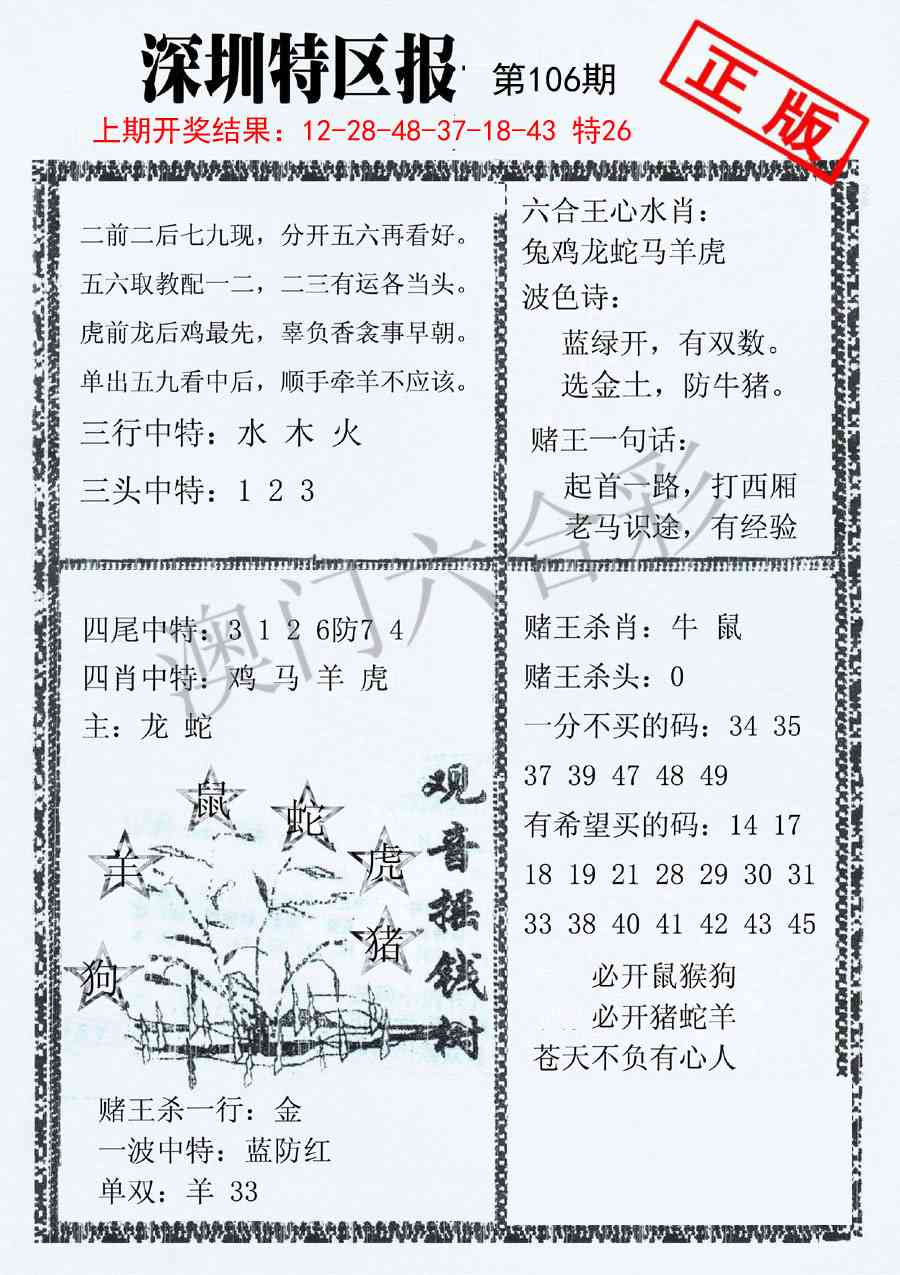 深圳特区报 第106期
正版
上期开奖结果：12-28-48-37-18-43 特26
二前二后七九现，分开五六再看好。
五六取教配一二，二三有运各当头。
虎前龙后鸡最先，辜负香衾事早朝。
单出五九看中后，顺手牵羊不应该。
三行中特：水 木 火
三头中特：1 2 3
六合王心水肖：
兔鸡龙蛇马羊虎
波色诗：
蓝绿开，有双数。
选金土，防牛猪。
赌王一句话：
起首一路，打西厢
老马识途，有经验
澳门六合彩
四尾中特：3 1 2 6防7 4
四肖中特：鸡 马 羊 虎
主：龙 蛇
鼠
蛇
羊
虎
猪
狗
观音摇钱树
赌王杀一行：金
一波中特：蓝防红
单双：羊 33
赌王杀肖：牛 鼠
赌王杀头：0
一分不买的码：34 35
37 39 47 48 49
有希望买的码：14 17
18 19 21 28 29 30 31
33 38 40 41 42 43 45
必开鼠猴狗
必开猪蛇羊
苍天不负有心人